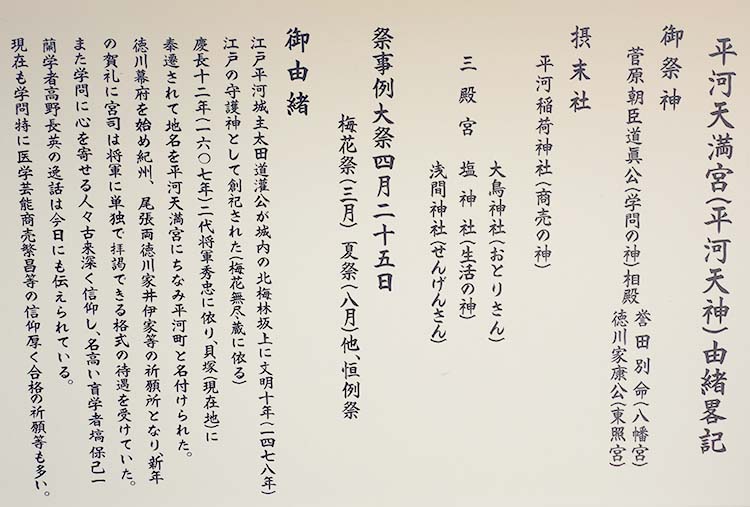 平河天満宮(平河天神)由緒畧記
御祭神
菅原朝臣道真公(学問の神)相殿
誉田別命(八幡宮)
徳川家康公(東照宮)
摂末社
平河稲荷神社(商売の神)
三殿宮
大鳥神社(おとりさん)
塩神社(生活の神)
浅間神社(せんげんさん)
祭事例大祭四月二十五日
梅花祭(三月) 夏祭(八月)他、恒例祭
御由緒
江戸平河城主太田道灌公が城内の北梅林坂上に文明十年(一四七八年)
江戸の守護神として創祀された(梅花無尽蔵に依る)
慶長十二年(一六〇七年)二代将軍秀忠に依り、貝塚(現在地)に
奉遷されて地名を平河天満宮にちなみ平河町と名付けられた。
徳川幕府を始め紀州、尾張両徳川家井伊家等の祈願所となり、新年
の賀礼に宮司は将軍に単独で拝謁できる格式の待遇を受けていた。
また学問に心を寄せる人々古来深く信仰し、名高い盲学者塙保己一
蘭学者高野長英の逸話は今日にも伝えられている。
現在も学問特に医学芸能商売繁昌等の信仰厚く合格の祈願等も多い。